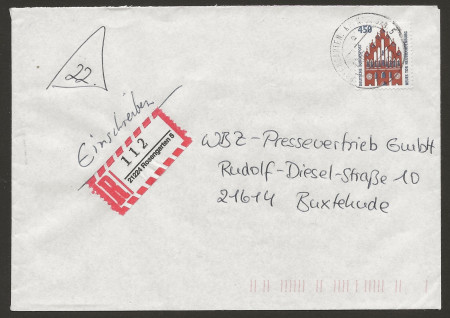 450
22.
Einschreiben
R
112
21224 Rosengarten 5
WBZ-Pressevertrieb GmbH
Rudolf-Diesel-Straße 10
21614 Buxtehude